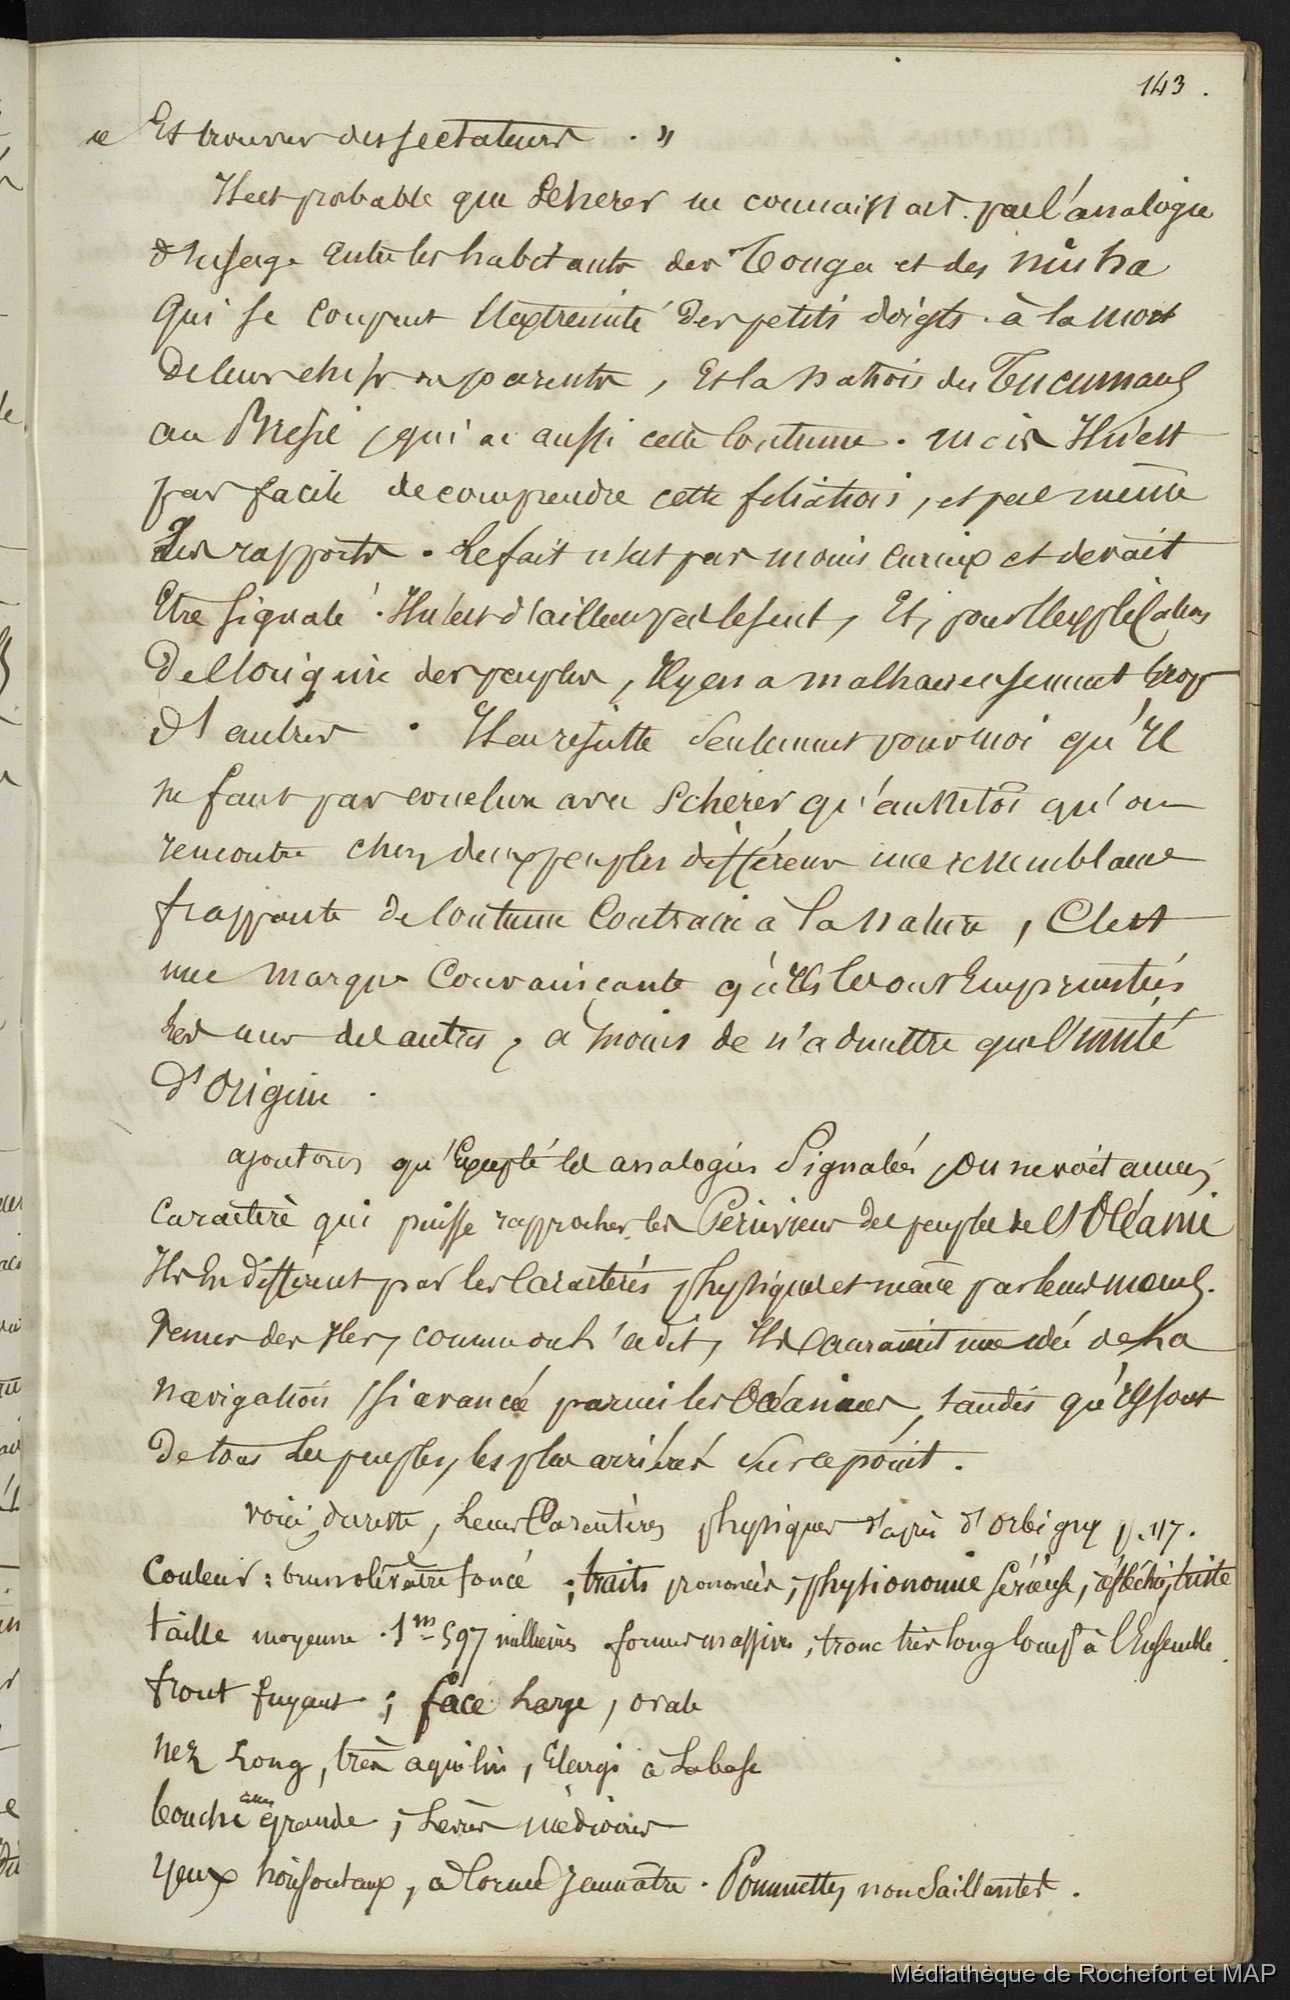 143.
« Et trouver des sectateurs. »
Il est probable que Scherer ne connaissait pas l'analogie
d'usage entre les habitants des Tonga et des
qui se coupent l'extremité des petits doigts à la mort
de leurs chefs ou parents, Et la nation des Tucumans
au Bresil, qui a aussi cette Coutume. mais Il n'est
pas facile de comprendre cette filiation, et pas même
Les rapports. Le fait n'est pas moins curieux et devait
Etre signalé. Il n'est d'ailleurs pas le seul, Et, pour l'explication
De l'origine des peuples, Il y en a malheureusement trop
d'autres. Il en résulte seulement pour moi qu'Il
ne faut pas conclure avec Scherer qu'aussitôt qu'on
rencontre chez deux peuples différens une ressemblance
frappante de Coutume Contraire à La nature, C'est
une marque Convainçante qu'Ils les ont Empruntées
les uns des autres, a moins de n'admettre que l'unité
d'origine.
ajoutons qu'Excepté les analogies signalées, on ne voit aucun
Caractère qui puisse rapprocher les Péruviens des peuples de l'Océanie
Ils En diffèrent par les Caractères physiques et même par leurs mœurs.
Venus des Iles, comme on l'a dit, Ils auraient une idée de la
navigation si avancée parmi les Océaniens, tandis qu'Ils sont
De tous Les peuples, les plus arriérés sur ce point.
voici, du reste, Leurs Caractères physiques d'après d'Orbigny p. 117.
Couleur : brun olivâtre foncé ; traits prononcés ; physionomie sérieuse, réfléchie, triste
taille moyenne. 1m 597 millièmes. formes massives ; tronc très long Comp. à l'Ensemble.
front fuyant ; face Large, ovale
nez Long, très aquilin, Elargi à La base
bouche assez grande ; Lèvres médiocres
yeux horisontaux, à Cornée jaunâtre. Pommettes non saillantes.
Médiathèque de Rochefort et MAP